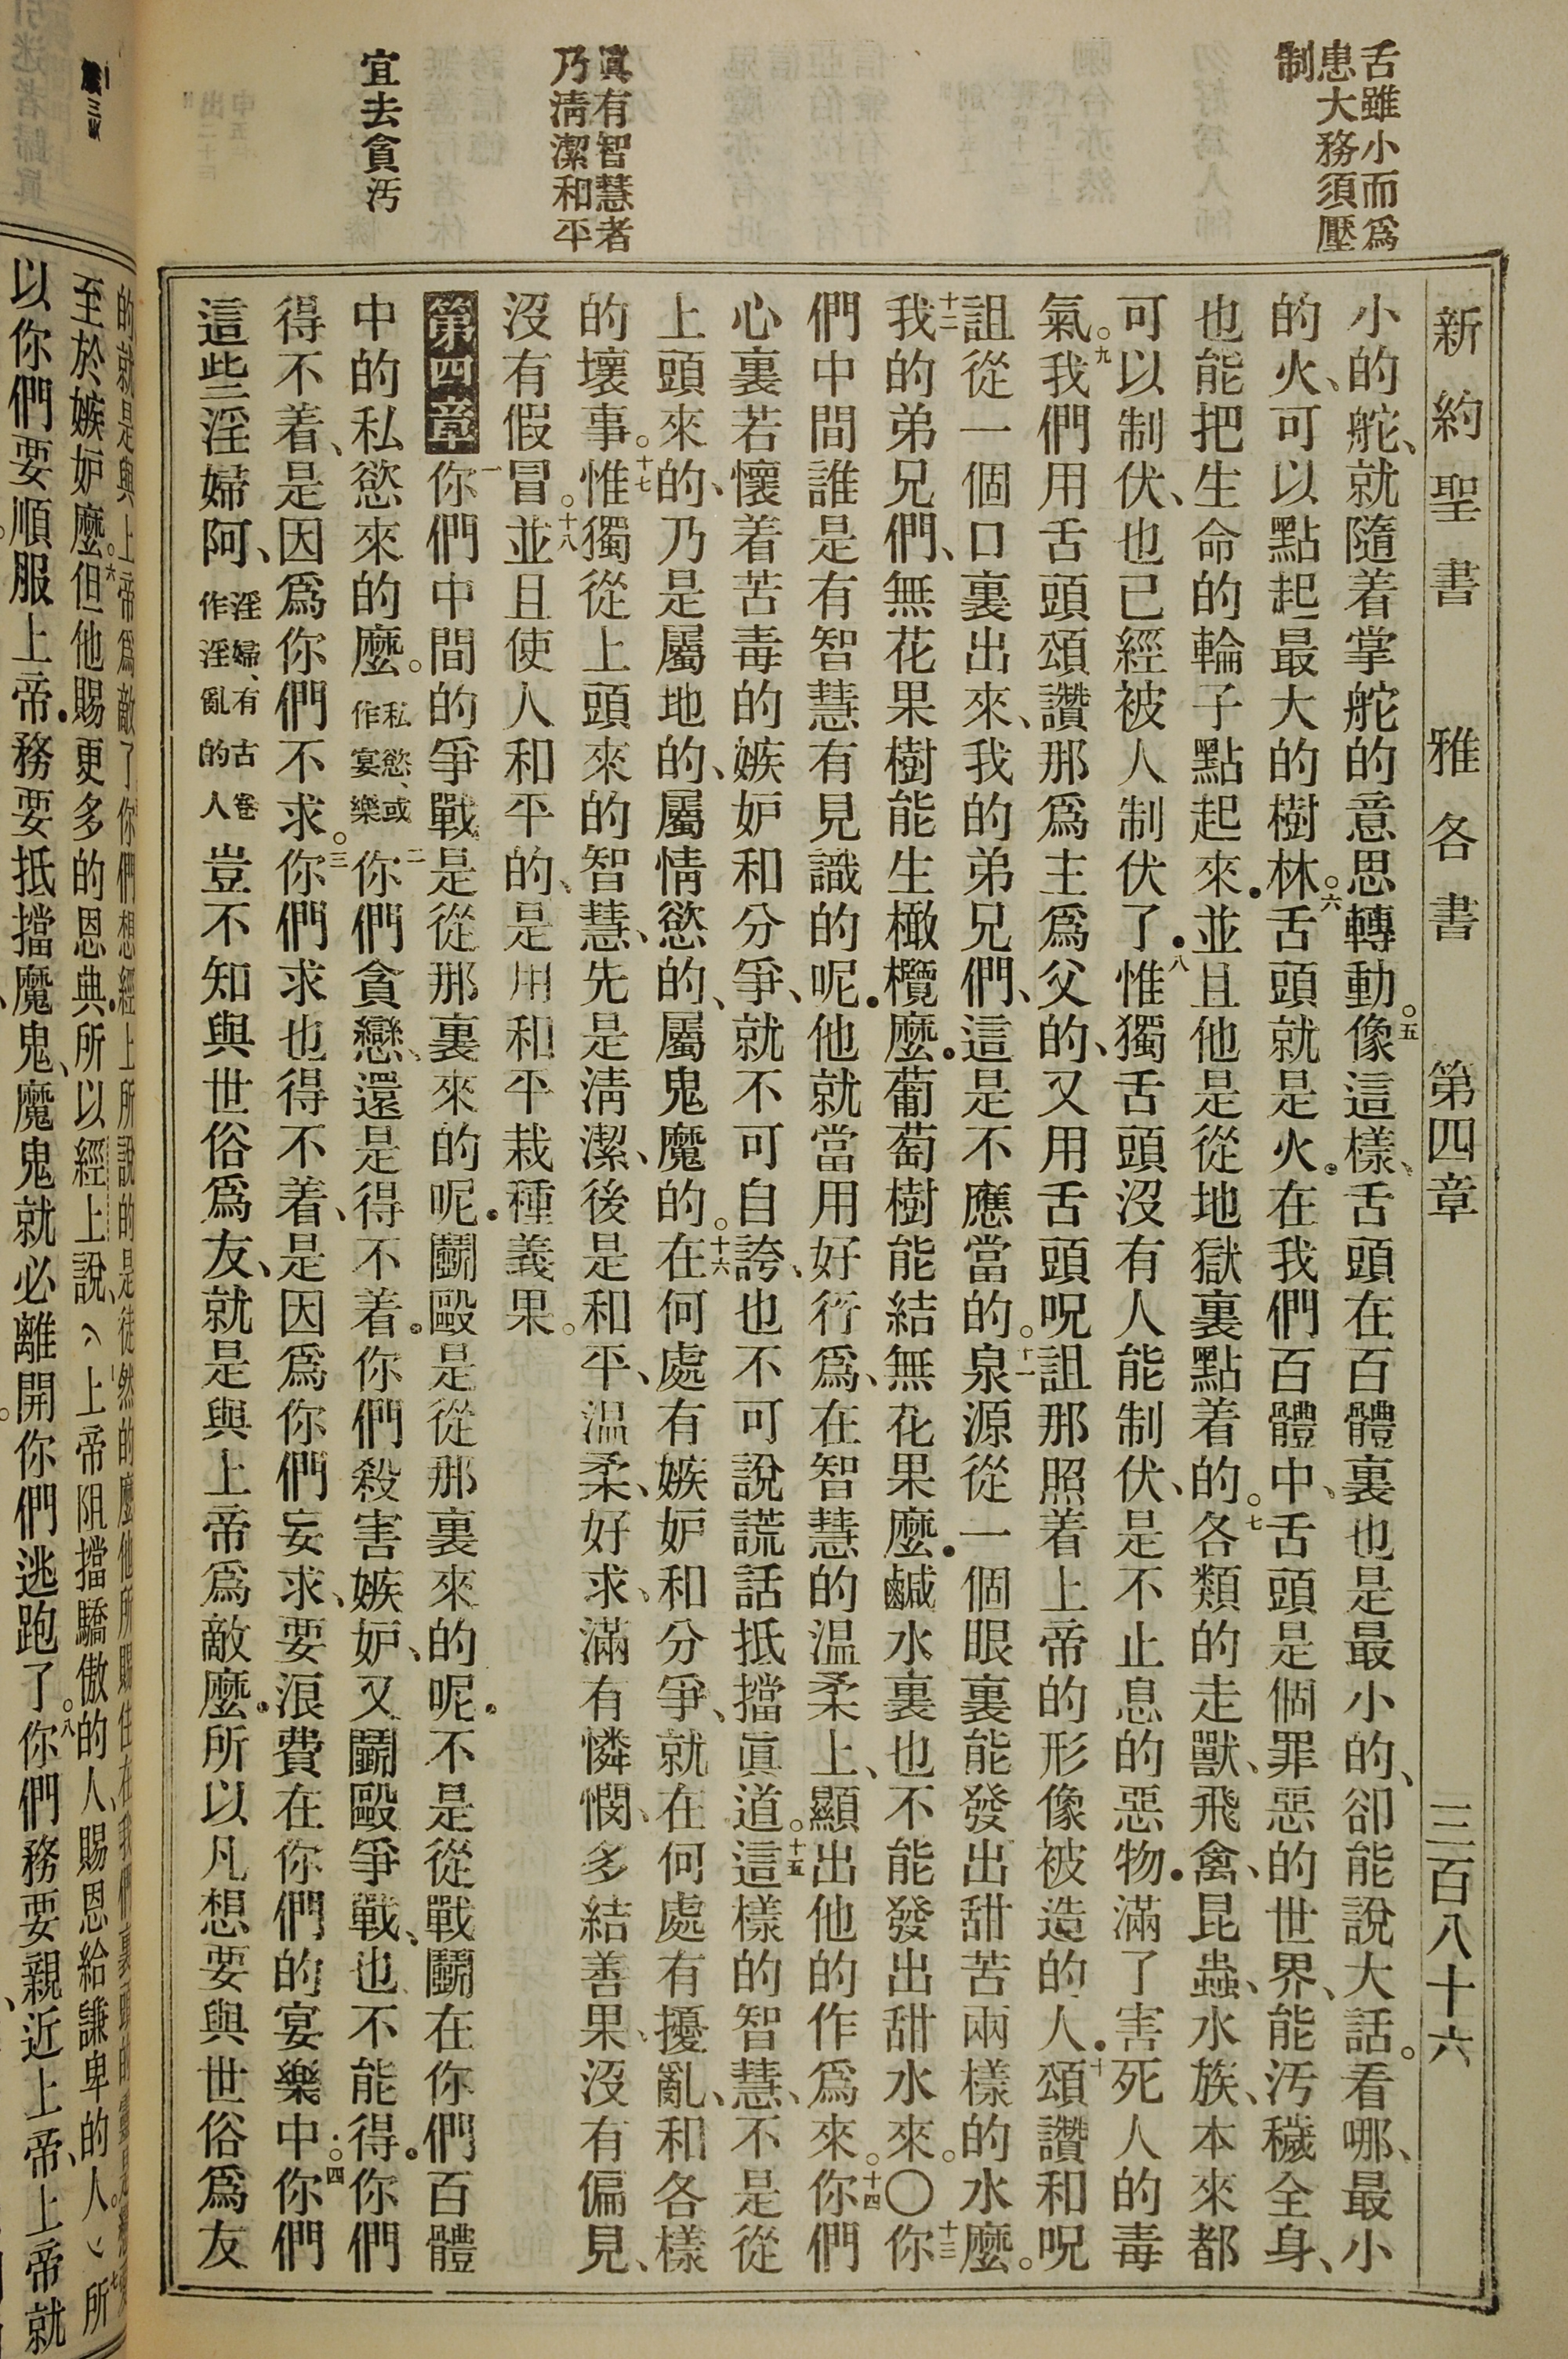 新約聖書　雅各書　第四章　三百八十六
舌雖小而爲
患大務須壓
制
眞有智慧者
乃淸潔和平
宜去貪汚
小的舵、就隨着掌舵的意思轉動。五像這樣、舌頭在百體裏也是最小的、卻能說大話。看哪、最小
的火、可以點起最大的樹林。六舌頭就是火．在我們百體中、舌頭是個罪惡的世界、能汚穢全身、
也能把生命的輪子點起來．並且他是從地獄裏點着的。七各類的走獸、飛禽、昆蟲、水族、本來都
可以制伏、也已經被人制伏了．八惟獨舌頭沒有人能制伏、是不止息的惡物．滿了害死人的毒
氣。九我們用舌頭頌讚那爲主爲父的、又用舌頭呪詛那照着上帝的形像被造的人．十頌讚和呪
詛從一個口裏出來、我的弟兄們、這是不應當的。十一泉源從一個眼裏能發出甜苦兩樣的水麼。
十二我的弟兄們、無花果樹能生橄欖麼．葡萄樹能結無花果麼．鹹水裏也不能發出甜水來。〇十三你
們中間誰是有智慧有見識的呢．他就當用好行爲、在智慧的温柔上、顯出他的作爲來。十四你們
心裏若懷着苦毒的嫉妒和分爭、就不可自誇、也不可說謊話抵擋眞道。十五這樣的智慧、不是從
上頭來的、乃是屬地的、屬情慾的、屬鬼魔的。十六在何處有嫉妒和分爭、就在何處有擾亂、和各樣
的壞事。十七惟獨從上頭來的智慧、先是淸潔、後是和平、温柔、好求、滿有憐憫、多結善果、沒有偏見、
沒有假冒。十八並且使人和平的、是用和平栽種義果。
第四章　一你們中間的爭戰是從那裏來的呢．鬭毆是從那裏來的呢．不是從戰鬭在你們百體
中的私慾來的麼。私慾、或作宴樂　二你們貪戀、還是得不着．你們殺害嫉妒、又鬭毆爭戰、也不能得．你們
得不着、是因爲你們不求。三你們求也得不着、是因爲你們妄求、要浪費在你們的宴樂中。四你們
這些淫婦阿、淫婦、有古卷作淫亂的人　豈不知與世俗爲友、就是與上帝爲敵麼．所以凡想要與世俗爲友
的就是與上帝爲敵了你們想經上所說的是徒然的麼他所賜住在我們裏頭的
至於嫉妒麼。六但他賜更多的恩典．所以經上說、上帝阻擋驕傲的人、賜恩給謙卑的人。七所
以你們要順服上帝．務要抵擋魔鬼、魔鬼就必離開你們逃跑了。八你們務要親近上帝、上帝就